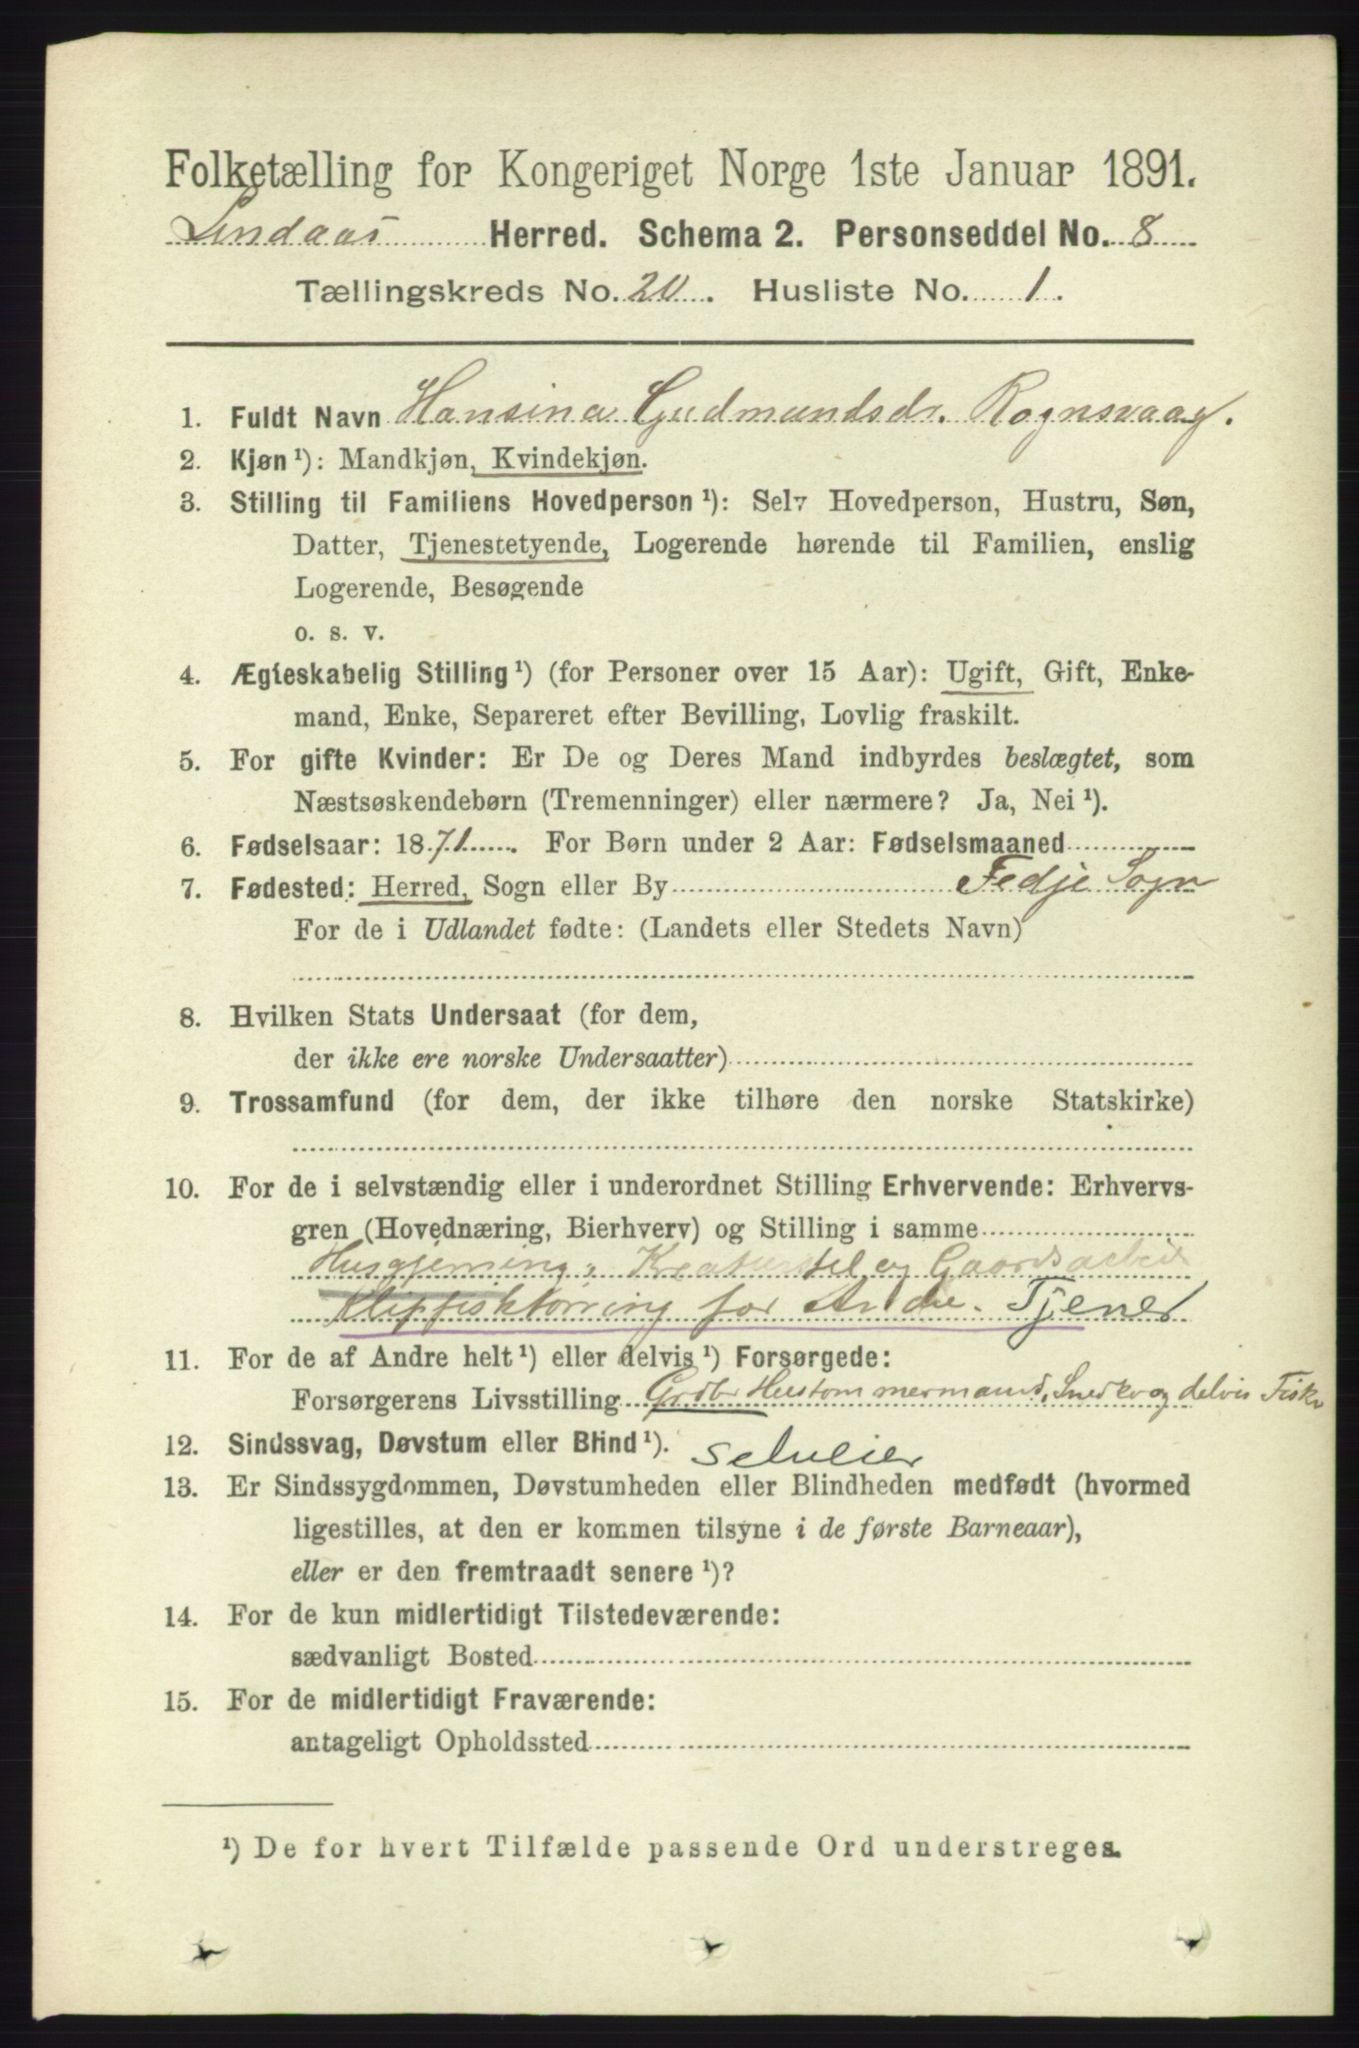 Folketælling for Kongeriget Norge 1ste Januar 1891.
Lindaas Herred. Schema 2. Personseddel No. 8
Tællingskreds No. 20. Husliste No. 1.
1. Fuldt Navn Hansina Gudmundsdr. Rognsvaag.
2. Kjøn¹): Mandkjøn, Kvindekjøn.
3. Stilling til Familiens Hovedperson¹): Selv Hovedperson, Hustru, Søn,
Datter, Tjenestetyende, Logerende hørende til Familien, enslig
Logerende, Besøgende
o. s. v.
4. Ægteskabelig Stilling¹) (for Personer over 15 Aar): Ugift, Gift, Enke-
mand, Enke, Separeret efter Bevilling, Lovlig fraskilt.
5. For gifte Kvinder: Er De og Deres Mand indbyrdes beslægtet, som
Næstsøskendebørn (Tremenninger) eller nærmere? Ja, Nei¹).
6. Fødselsaar: 1871. For Børn under 2 Aar: Fødselsmaaned
7. Fødested: Herred, Sogn eller By Fedje Sogn
For de i Udlandet fødte: (Landets eller Stedets Navn)
8. Hvilken Stats Undersaat (for dem,
der ikke ere norske Undersaatter)
9. Trossamfund (for dem, der ikke tilhøre den norske Statskirke)
10. For de i selvstændig eller i underordnet Stilling Erhvervende: Erhvervs-
gren (Hovednæring, Bierhverv) og Stilling i samme
Husgjerning, Kreaturstel og Gaardsarbeide
Klipfisktørring for Andre. Tjener
11. For de af Andre helt¹) eller delvis¹) Forsørgede:
Forsørgerens Livsstilling Grdbr Hustømmermand, Snedker og delvis Fisker
12. Sindssvag, Døvstum eller Blind¹). selveier
13. Er Sindssygdommen, Døvstumheden eller Blindheden medfødt (hvormed
ligestilles, at den er kommen tilsyne i de første Barneaar),
eller er den fremtraadt senere¹)?
14. For de kun midlertidigt Tilstedeværende:
sædvanligt Bosted
15. For de midlertidigt Fraværende:
antageligt Opholdssted
¹) De for hvert Tilfælde passende Ord understreges.